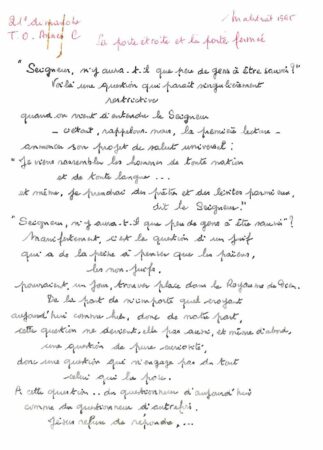 21e dimanche
T. O. Année C
Malestroit 1995
La porte étroite et la porte fermée
"Seigneur, n'y aura-t-il que peu de gens à être sauvés?"
Voilà une question qui paraît singulièrement
restrictive
quand on vient d'entendre le Seigneur
- c'était, rappelons-nous, la première lecture -
annoncer son projet de salut universel :
"Je viens rassembler les hommes de toute nation
et de toute langue ...
et même, je prendrai des prêtres et des lévites parmi eux,
dit le Seigneur."
"Seigneur, n'y aura-t-il que peu de gens à être sauvés"?
Manifestement, c'est la question d'un juif
qui a de la peine à penser que les païens,
les non-juifs,
pourraient, un jour, trouver place dans le Royaume de Dieu.
De la part de n'importe quel croyant
aujourd'hui comme hier, donc de notre part,
cette question ne devient-elle pas aussi, et même d'abord,
une question de pure curiosité,
donc une question qui n'engage pas du tout
celui qui la pose.
A cette question.. du questionneur d'aujourd'hui
comme du questionneur d'autrefois,
Jésus refuse de répondre, ...